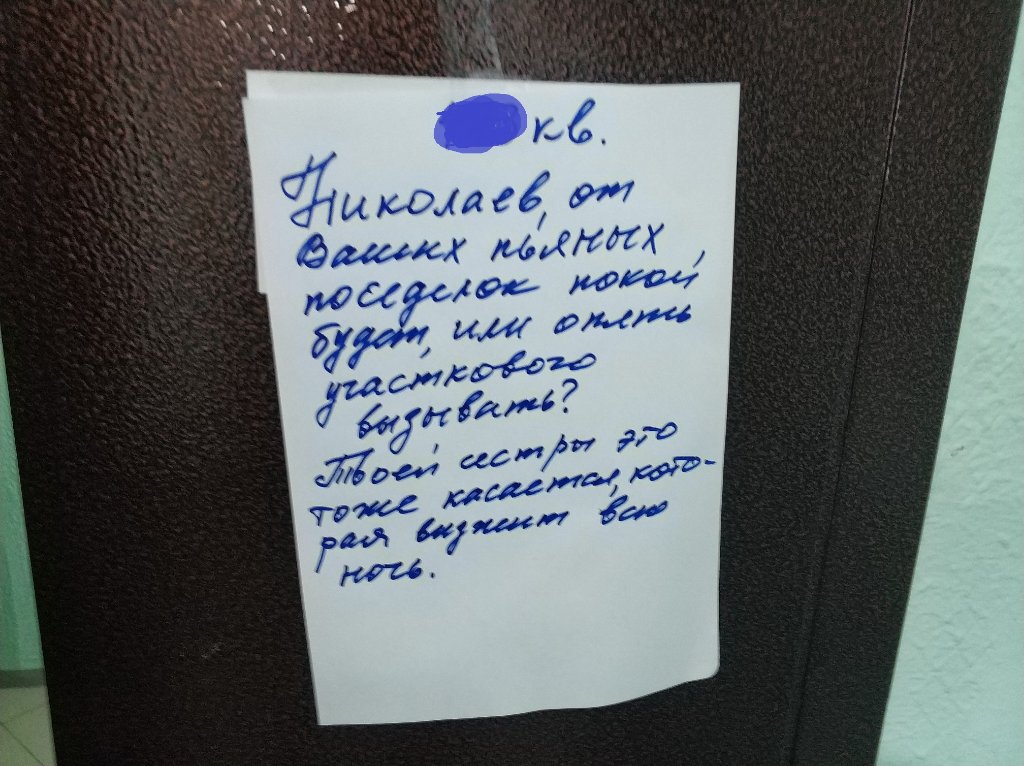 кв.
Николаев, от
Ваших пьяных
поседелок покой
будет, или опять
участкового
вызывать?
Твоей сестры это
тоже касается, кото-
рая визжит всю
ночь.